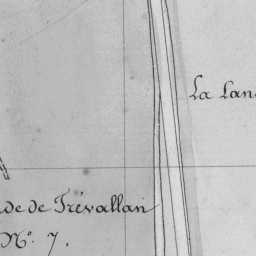 La Lan
de de Trévallan
N.° 7.